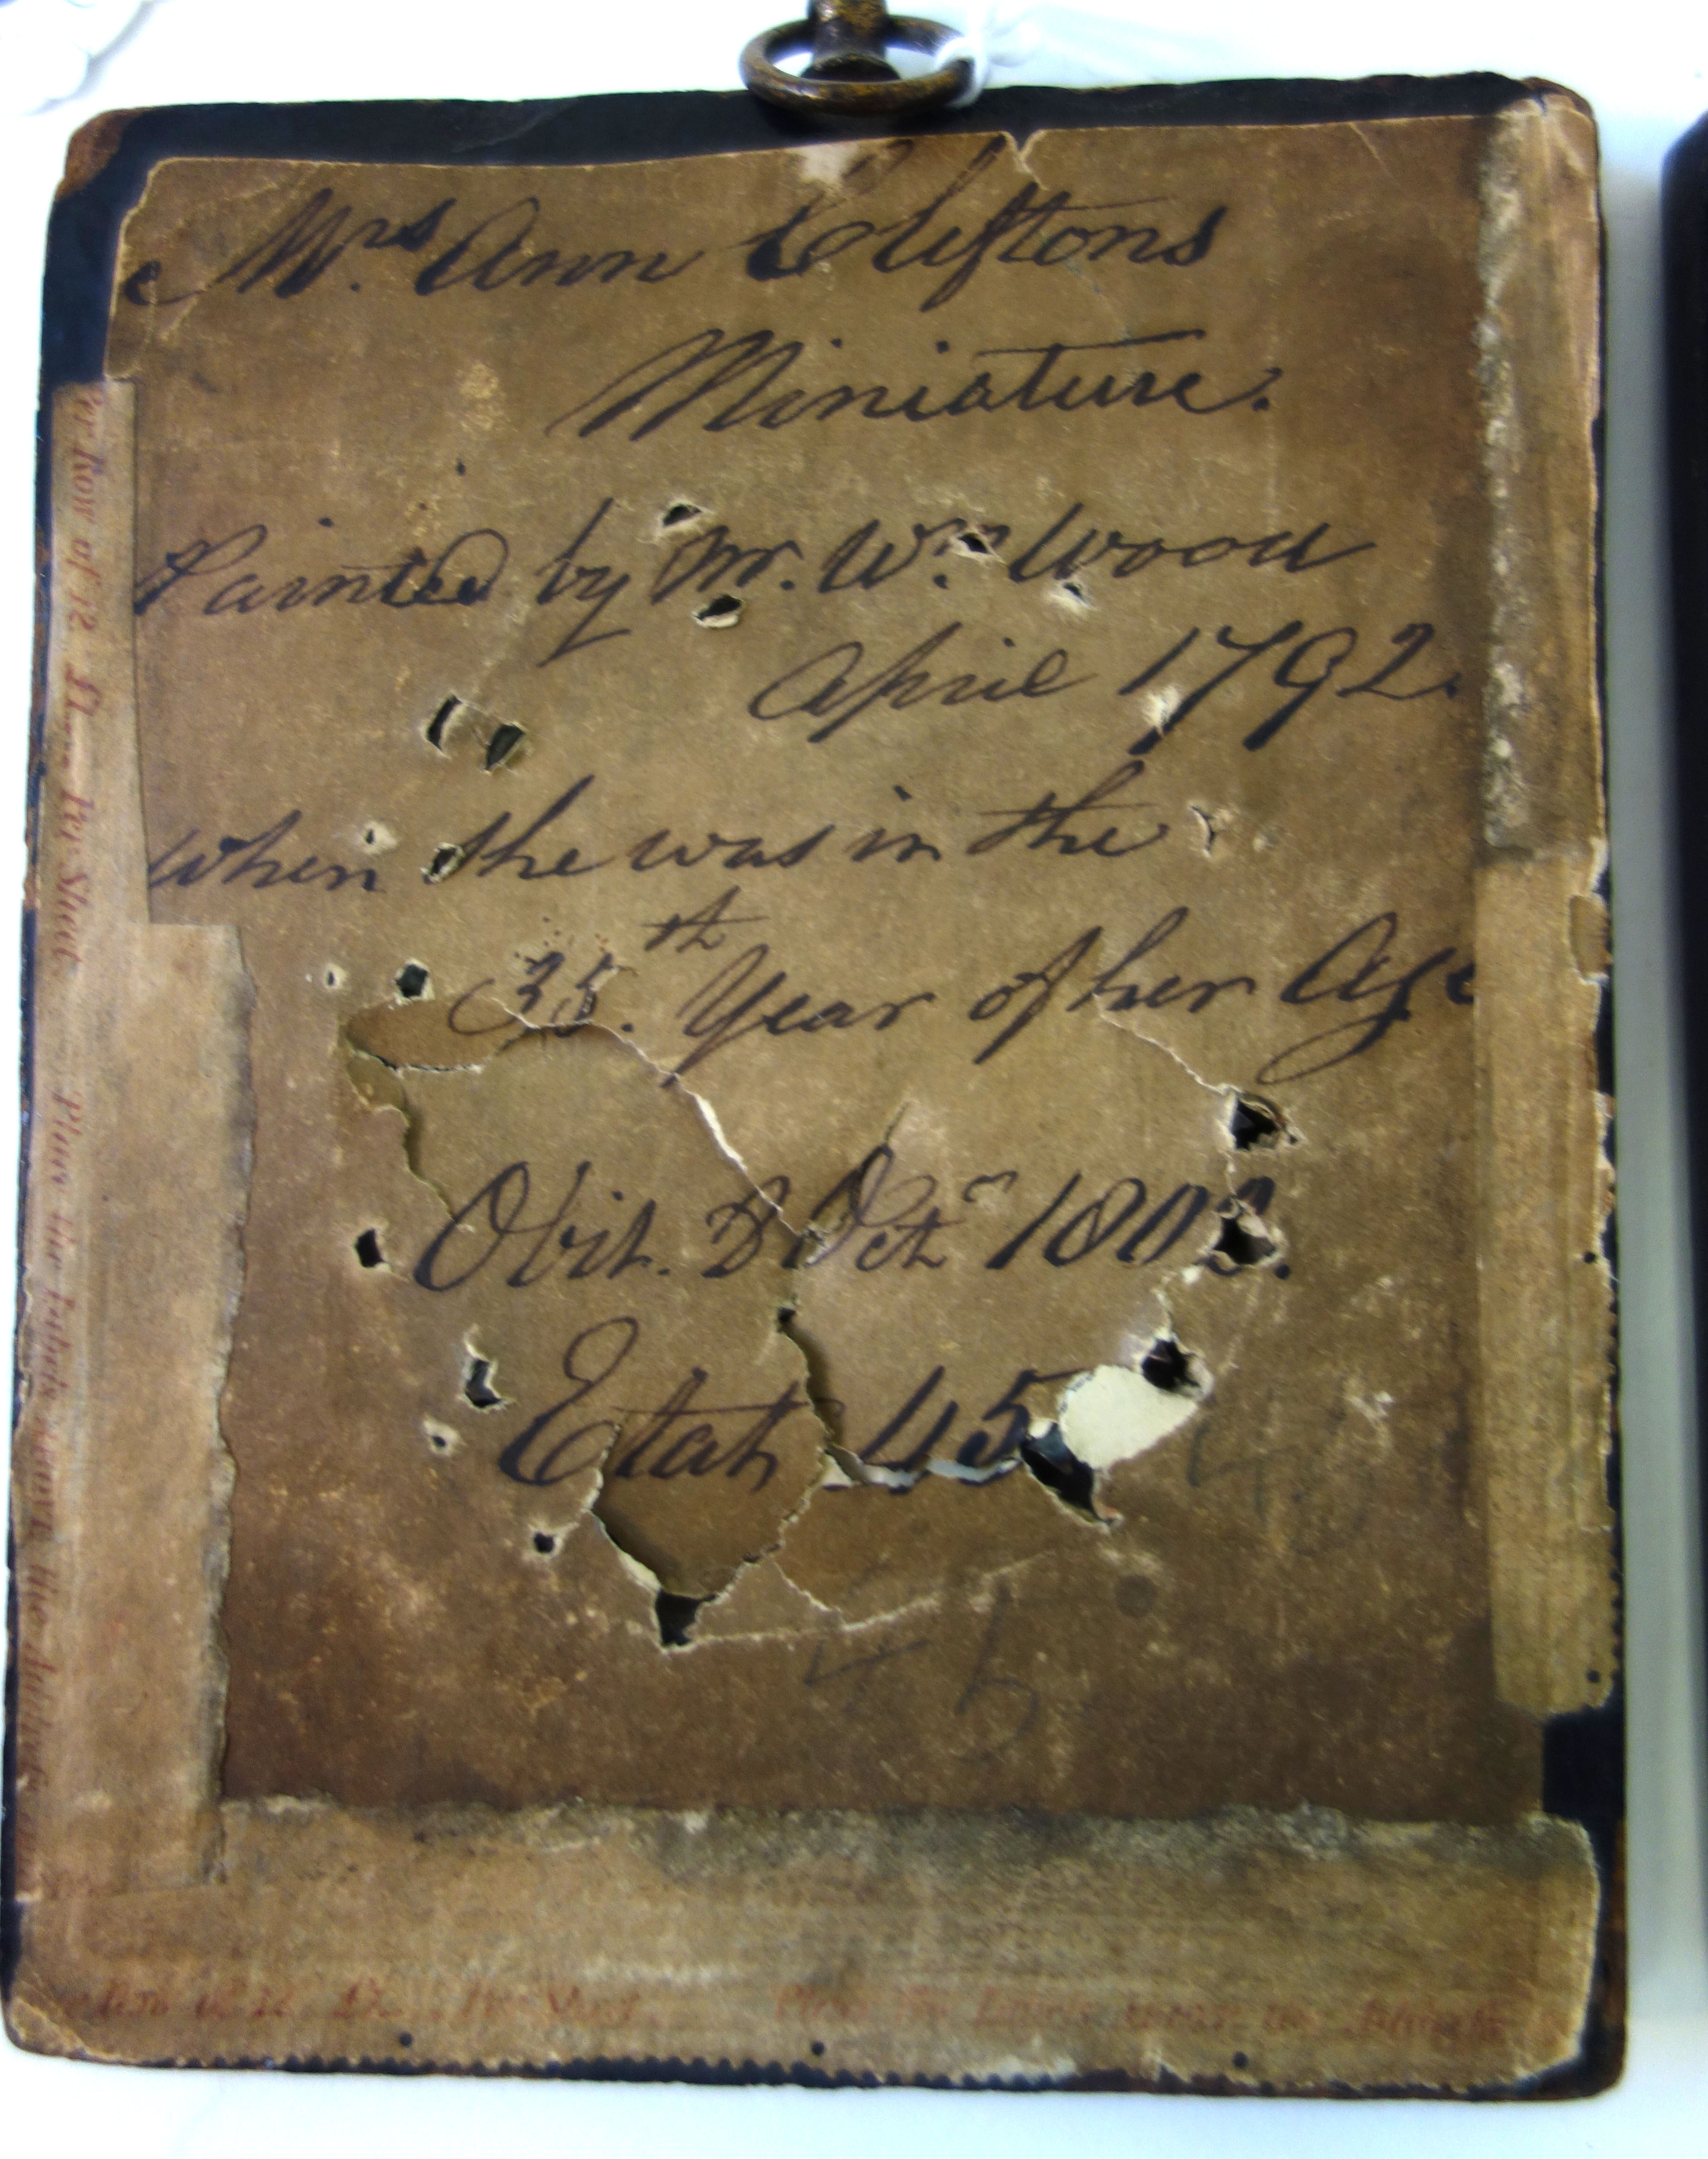 Mrs Ann Cliftons
Miniature.
Painted by Mr. Wm. Wood
April 1792.
when she was in the
35th. Year of her Age
Obit. 8 Octr 1802.
Etat 45
45
45
Per Row of 12. Per Sheet. Place the Labels above the
Per Sheet. Place the Labels above the